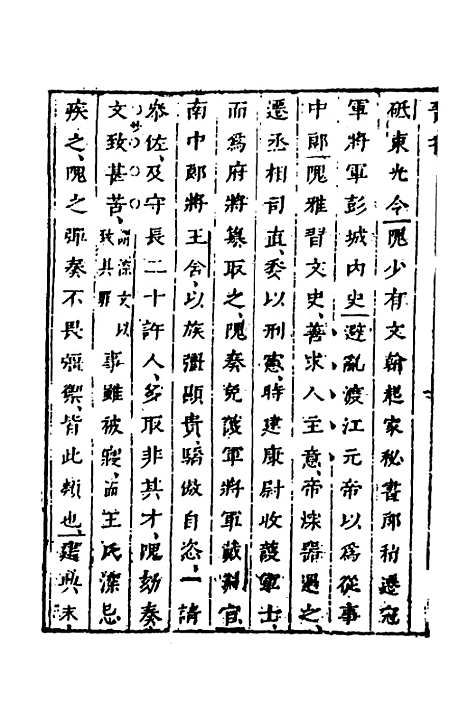 砥東光令隗少有文翰起家秘書郎稍遷冠
軍將軍彭城內史避亂渡江元帝以爲從事
中郎隗雅習文史善求人主意帝深器遇之
遷丞相司直委以刑憲時建康尉收護軍士
而爲府將篡取之隗奏免護軍將軍戴若官
南中郎將王含以族彊顯貴驕傲自恣一請
參佐及守長二十許人多取非其才隗劾奏
文致甚苦謂深文以致其罪事雖被寢而王氏深忌
疾之隗之彈奏不畏彊禦皆此類也建興末